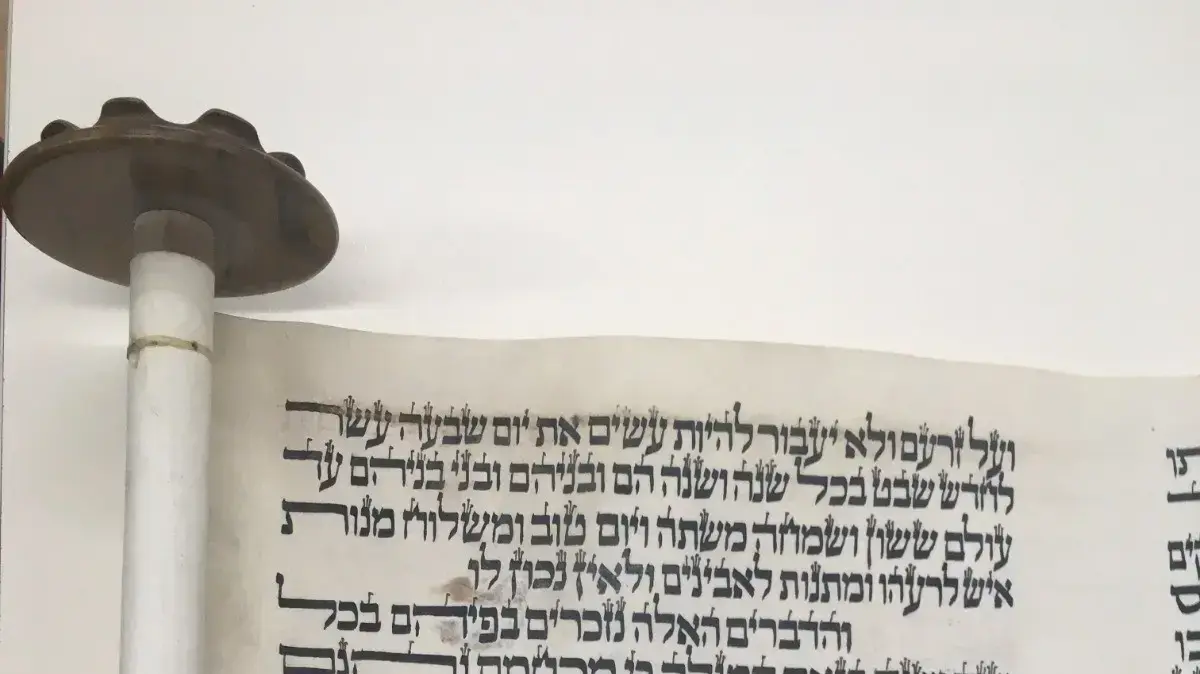 ועל זרעם ולא יעבור להיות עשים את יום שבעה עשר
לחדש שבט בכל שנה ושנה הם ובניהם ובני בניהם עד
עולם ששון ושמחה משתה ויום טוב ומשלוח מנות
איש לרעהו ומתנות לאבינים ולאין נכון לו
והדברים האלה נזכרים בפיהם בכל